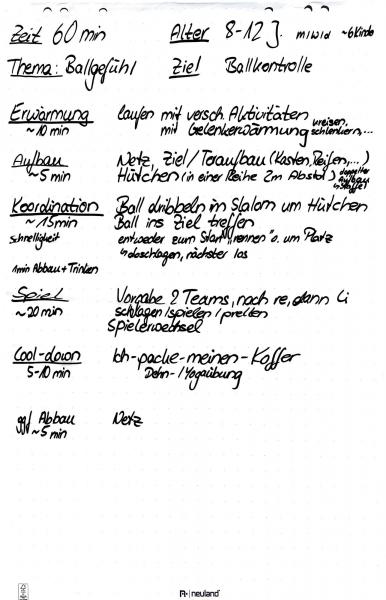 Zeit 60 min Alter 8-12 J. m/w/d ~6 Kinder
Thema: Ballgefühl Ziel Ballkontrolle
Erwärmung laufen mit versch. Aktivitäten
~10 min mit Gelenkerwärmung kreisen, schlenkern,...
Aufbau Netz, Ziel/Toraufbau (Kasten, Reifen,...)
~5 min Hütchen (in einer Reihe 2m Abstd.) doppelter Aufbau
Koordination Ball dribbeln im Slalom um Hütchen
~15 min Ball ins Ziel treffen
Schnelligkeit entweder zum Start "rennen" o. um Platz
↳ abschlagen, nächster los
1min Abbau + Trinken
Spiel Vorgabe 2 Teams, nach re, dann li
~20 min schlagen/spielen/prellen
Spielerwechsel
Cool-down Ich-packe-meinen-Koffer
5-10 min Dehn-/Yogaübung
ggf Abbau Netz
~5 min
neuland